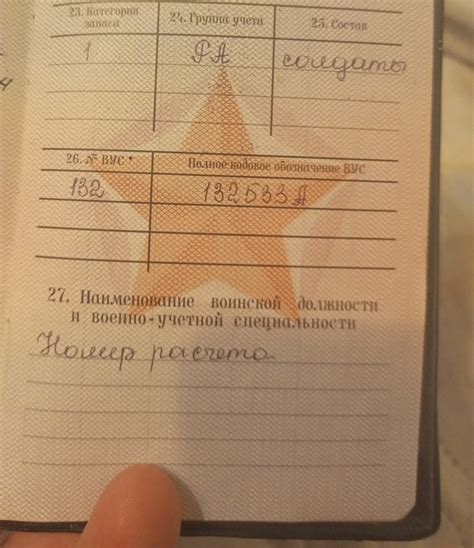 23. Категория запаса
24. Группа учета
25. Состав
1
РА
солдаты
26. № ВУС *
Полное кодовое обозначение ВУС
132
132533А
27. Наименование воинской должности
и военно-учетной специальности
Номер расчета